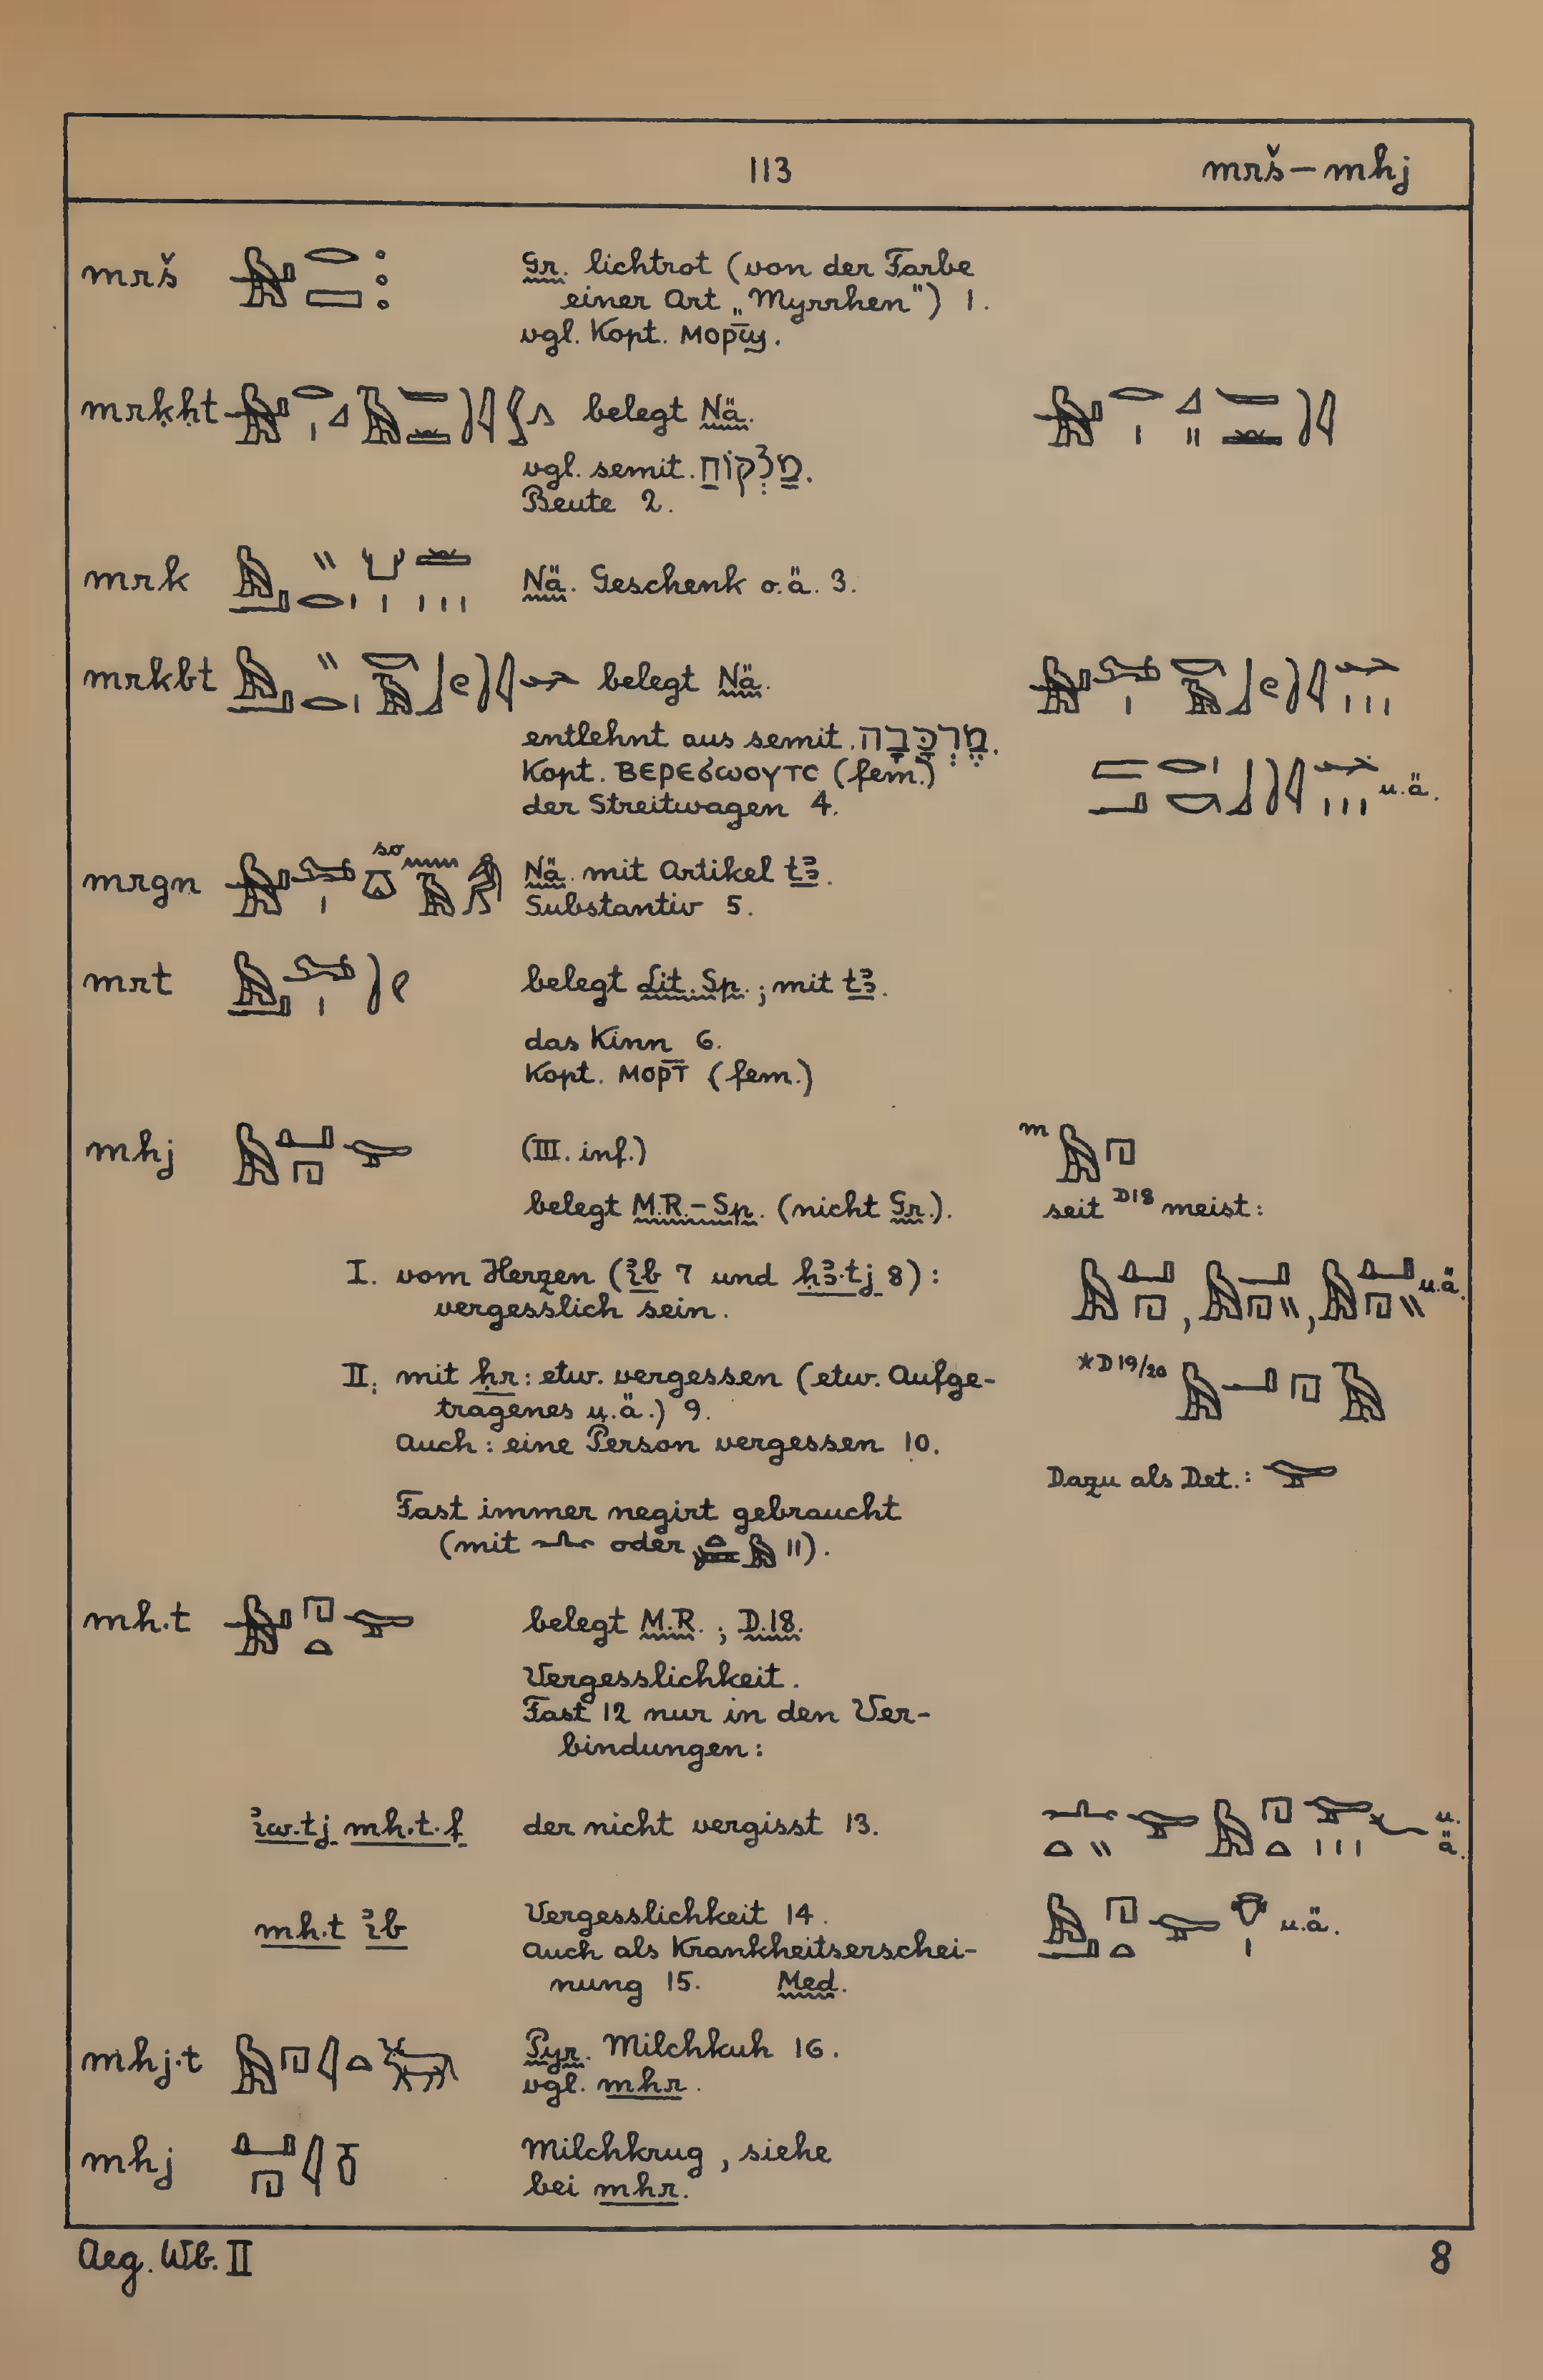 113 mrš – mhj
mrš Gr. lichtrot (von der Farbe
einer Art „Myrrhen") 1.
vgl. Kopt. ⲙⲟⲣϣ̄.
mrḳḥt belegt Nä.
vgl. semit. מַלְקוֹחַ.
Beute 2.
mrk Nä. Geschenk o.ä. 3.
mrkbt belegt Nä.
entlehnt aus semit. מֶרְכָּבָה.
Kopt. ⲃⲉⲣⲉϭⲱⲟⲩⲧⲥ (fem.)
der Streitwagen 4. u.ä.
mrgn so Nä. mit Artikel tꜣ.
Substantiv 5.
mrt belegt Lit. Sp.; mit tꜣ.
das Kinn 6.
Kopt. ⲙⲟⲣⲧ̄ (fem.)
mhj (III. inf.) m
belegt M.R. – Sp. (nicht Gr.). seit D18 meist:
I. vom Herzen (ı͗b 7 und ḥꜣ.tj 8): u.ä.
vergesslich sein.
II. mit ḥr: etw. vergessen (etw. Aufge- *D19/20
tragenes u.ä.) 9.
Auch: eine Person vergessen 10.
Dazu als Det.: 𓅯
Fast immer negirt gebraucht
(mit 𓂜 oder 11).
mh.t belegt M.R.; D.18.
Vergesslichkeit.
Fast 12 nur in den Ver-
bindungen:
ı͗w.tj mh.t.f der nicht vergisst 13. u.
ä.
mh.t ı͗b Vergesslichkeit 14. u.ä.
Auch als Krankheitserschei-
nung 15. Med.
mhj.t Pyr. Milchkuh 16.
vgl. mhr.
mhj Milchkrug, siehe
bei mhr.
Aeg. Wb. II 8